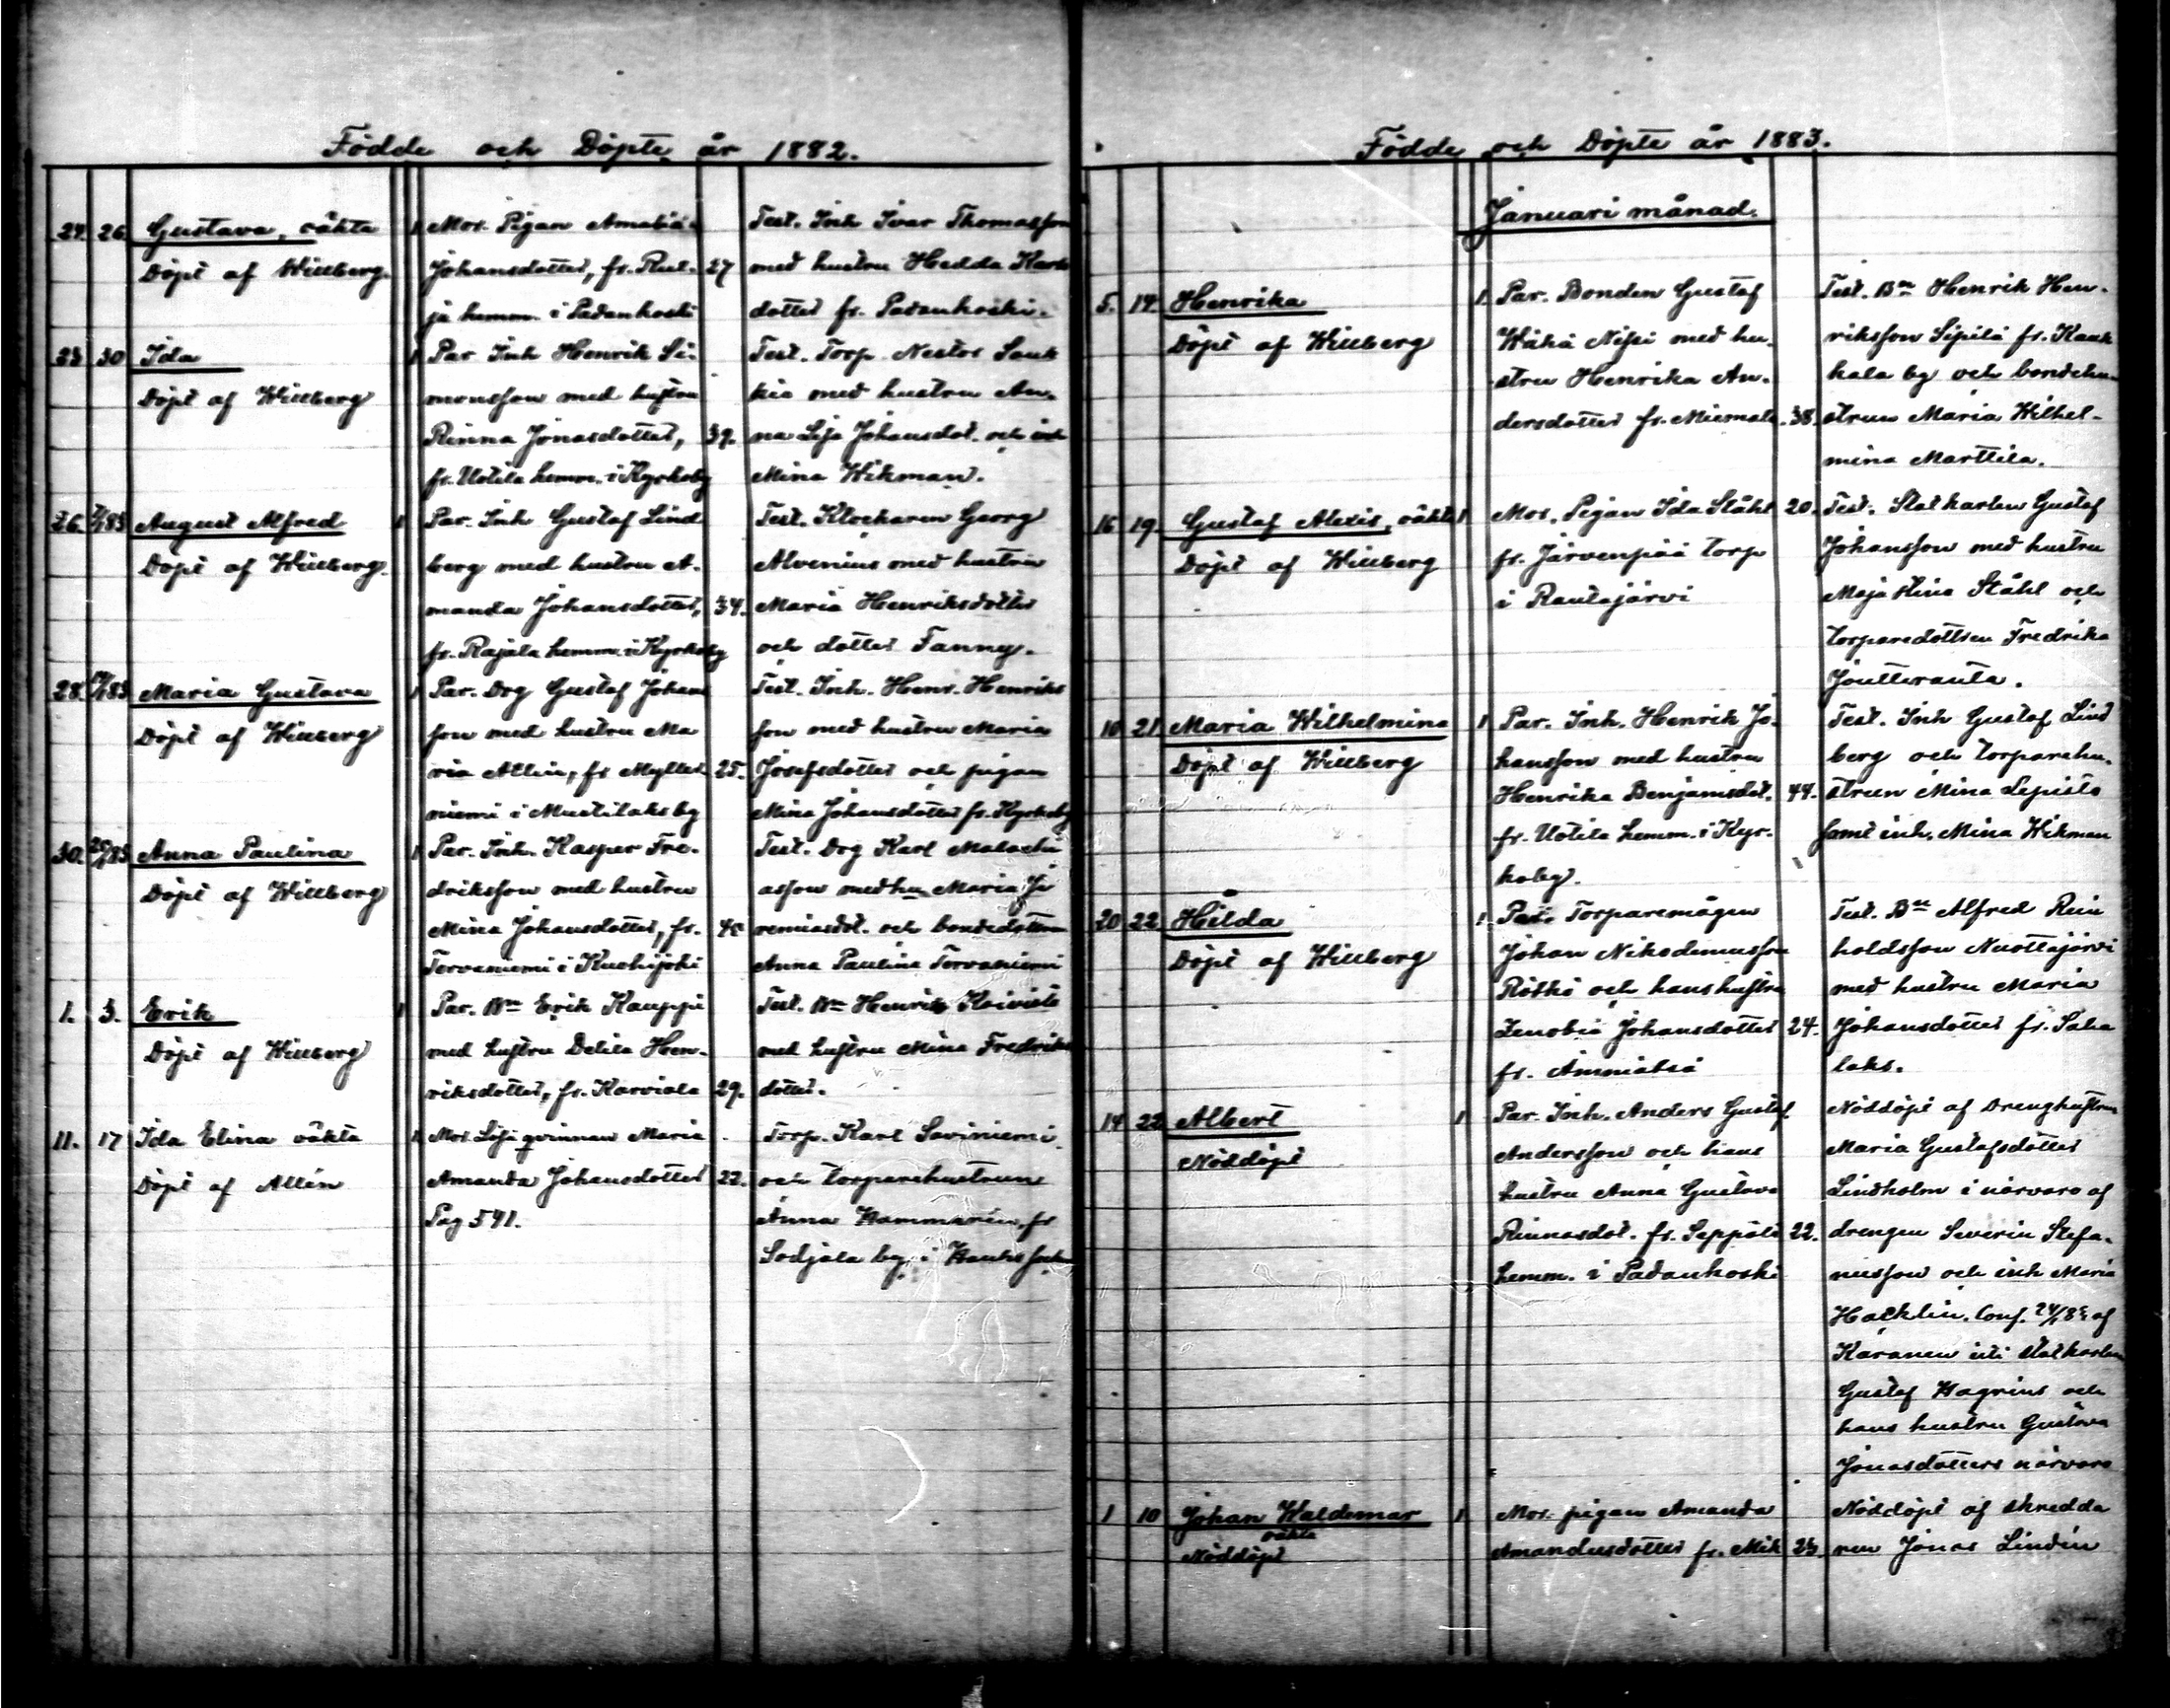 Födde och Döpte år 1882.
24. 26. Gustava, oäkta
Döpt af Willberg.
1 Mor. Pigan Amalia
Johansdotter, fr. Rul-
ja hemm. i Padankoski
27
Test. Inh Ivar Thomasson
med hustru Hedda Karls
dotter fr. Padankoski.
23 30 Ida
Döpt af Willberg
1 Par. Inh Henrik Si-
monsson med hustru
Rinna Jonasdotter,
fr. Uotila hemm. i Kyrkoby
39.
Test. Torp. Nestor Sauk
kia med hustru An-
na Lisa Johansdot. och inh
Mina Wikman.
26. /183 August Alfred
Döpt af Willberg.
1 Par. Inh Gustaf Lind
berg med hustru A-
manda Johansdotter,
fr. Rajala hemm. i Kyrkoby
34.
Test. Klockaren Georg
Alvenius med hustru
Maria Henriksdotter
och dotter Fanny.
28. /183 Maria Gustava
Döpt af Willberg
1 Par. Drg Gustaf Johans
son med hustru Ma
ria Allin, fr Myllyl
niemi i Mustilaks by
25.
Test. Inh. Henr. Henriks
son med hustru Maria
Josefsdotter och pigan
Mina Johansdotter fr. Kyrkoby
30. 20/183 Anna Paulina
Döpt af Willberg
1 Par. Inh. Kasper Fre-
driksson med hustru
Mina Johansdotter, fr.
Torvaniemi i Kuohijoki
40
Test. Drg Karl Malachi
asson med hu Maria Je
remiasdot. och bondedottern
Anna Paulina Torvaniemi
1. 3. Erik
Döpt af Willberg
1 Par. Bn Erik Kauppi
med hustru Delila Hen-
riksdotter, fr. Karviala
29.
Test. Bn Henrik Koivisto
med hustru Mina Fredriks
dotter.
11. 17 Ida Elina oäkta
Döpt af Allén
1 Mor. Lösa qvinnan Maria
Amanda Johansdotter
Pag 541.
22.
Torp. Karl Saviniemi
och torparehustrun
Anna Hammarén, fr
Sodjala by i Hauho socken
Födde och Döpte år 1883.
Januari månad.
5. 14. Henrika
Döpt af Willberg
1 Par. Bonden Gustaf
Wähä Nissi med hu-
stru Henrika An-
dersdotter fr. Miemala
38.
Test. Bn Henrik Hen-
riksson Sipilä fr. Kauk
kala by och bondehu-
strun Maria Wilhel-
mina Marttila.
16 19. Gustaf Alexis, oäkta
Döpt af Willberg
1 Mor. Pigan Ida Ståhl
fr. Järvenpää torp
i Rautajärvi
20.
Test. Statkarlen Gustaf
Johansson med hustru
Maja Stina Ståhl och
torparedottren Fredrika
Joutteranta.
16 21 Maria Wilhelmina
Döpt af Willberg
1 Par. Inh. Henrik Jo-
hansson med hustru
Henrika Benjamsdot.
fr. Uotila hemm. i Kyr-
koby.
44.
Test. Inh Gustaf Lind
berg och torparehu-
strun Mina Lepistö
samt inh. Mina Wikman
20 22 Hilda
Döpt af Willberg
1 Par. Torparemågen
Johan Nikodemusson
Rötkö och hans hustru
Zenobia Johansdotter
fr. Ämmätsä
24.
Test. Bn Alfred Rein
holdsson Nuottajärvi
med hustru Maria
Johansdotter fr. Saha
laks.
14 22 Albert
Nöddöpt
1 Par. Inh. Anders Gustaf
Andersson och hans
hustru Anna Gustava
Rinnasdot. fr. Seppälä
hemm. i Padankoski
22.
Nöddöpt af Drenghustrun
Maria Gustafsdotter
Lindholm i närvaro af
drengen Severin Stefa-
nusson och inh Maria
Hacklin. Conf. 24/1 83 af
Karanen uti statkarlen
Gustaf Hagrins och
hans hustru Gustava
Jonasdotters närvaro
1 10 Johan Waldemar
oäkta
Nöddöpt
1 Mor. pigan Amanda
Amandusdotter fr. Mik
23.
Nöddöpt af skredda
ren Jonas Lindén